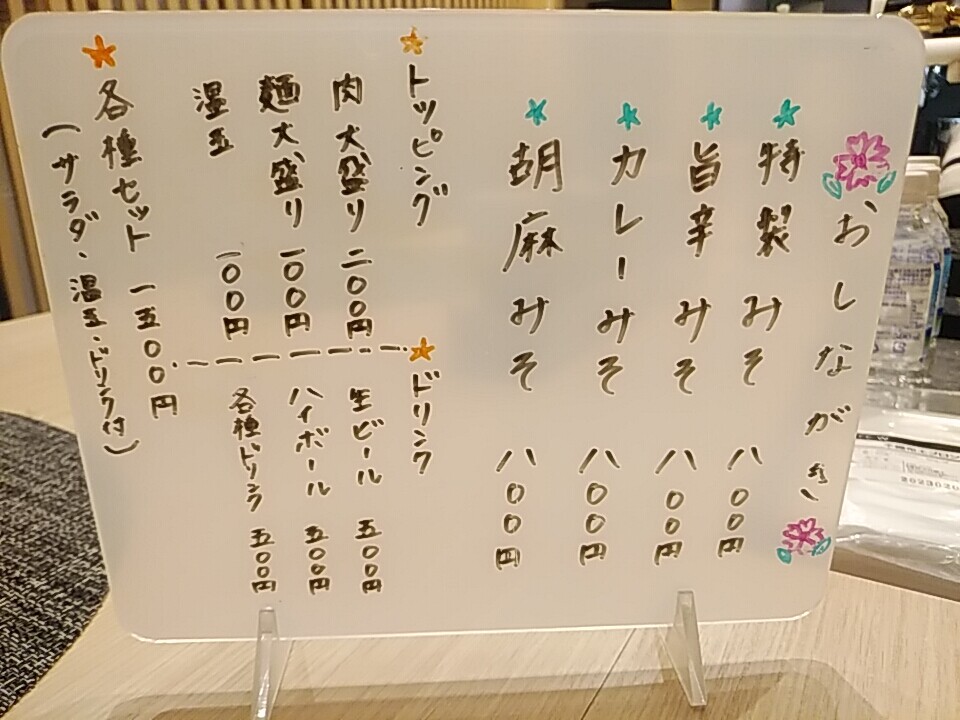 おしながき
特製みそ 八〇〇円
旨辛みそ 八〇〇円
カレーみそ 八〇〇円
胡麻みそ 八〇〇円
トッピング
肉大盛り 二〇〇円
麺大盛り 一〇〇円
温玉 一〇〇円
ドリンク
生ビール 五〇〇円
ハイボール 五〇〇円
各種ドリンク 五〇〇円
各種セット 一五〇〇円
(サラダ、温玉・ドリンク付)